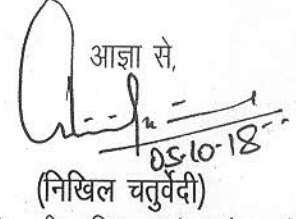 आज्ञा से,
05-10-18
(निखिल चतुर्वेदी)